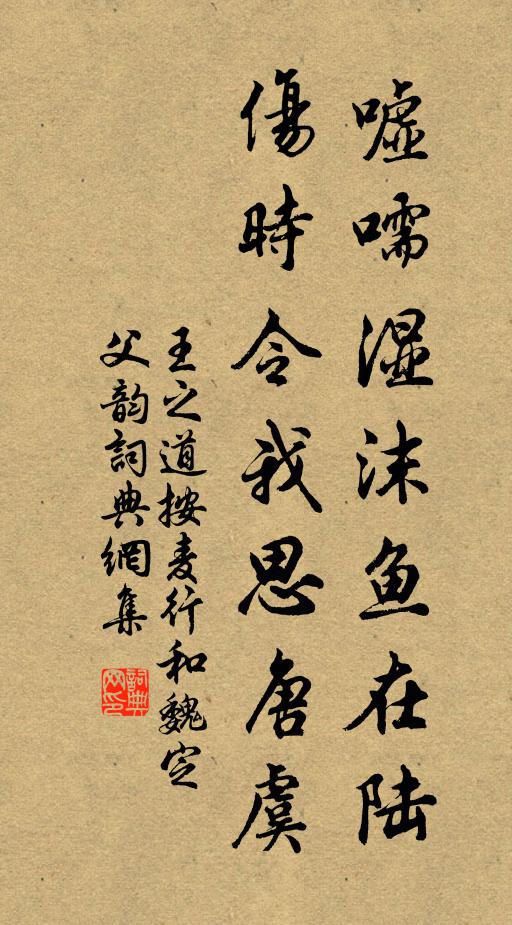 嘘嚅湿沫鱼在陆
傷時令我思唐虞
王之道按麦行和魏定
父韵詞典網集
詞典网印